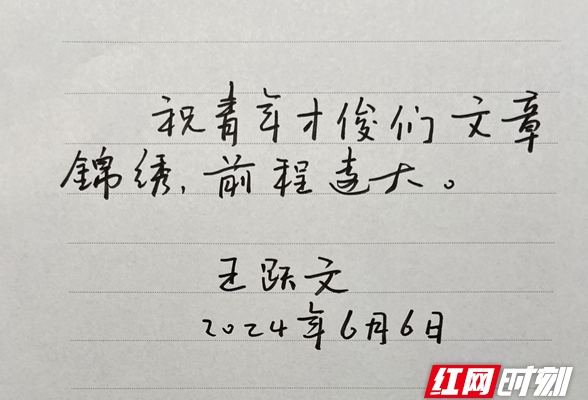 祝青年才俊们文章
錦绣，前程远大。
王跃文
2024年6月6日
红网时刻